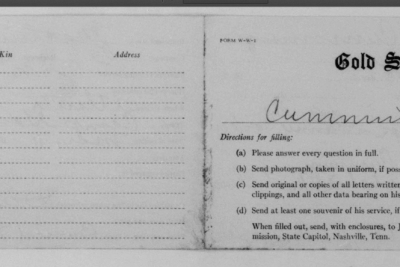 Kin
Address
FORM W-W-2
Gold S
Cummin
Directions for filling:
(a) Please answer every question in full.
(b) Send photograph, taken in uniform, if poss
(c) Send original or copies of all letters written
clippings, and all other data bearing on his
(d) Send at least one souvenir of his service, if
When filled out, send, with enclosures, to J
mission, State Capitol, Nashville, Tenn.